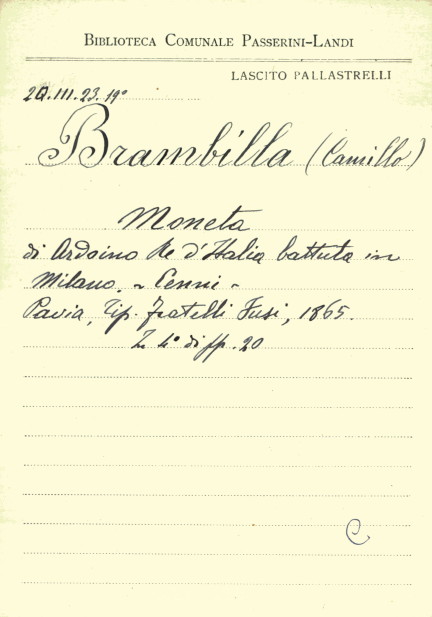 BIBLIOTECA COMUNALE PASSERINI-LANDI
LASCITO PALLASTRELLI
2Q.III.23.19°
Brambilla (Camillo)
Moneta
di Ardoino Re d'Italia battuta in
Milano. - Cenni -
Pavia, Tip. Fratelli Fusi, 1865.
4° di pp. 20
C